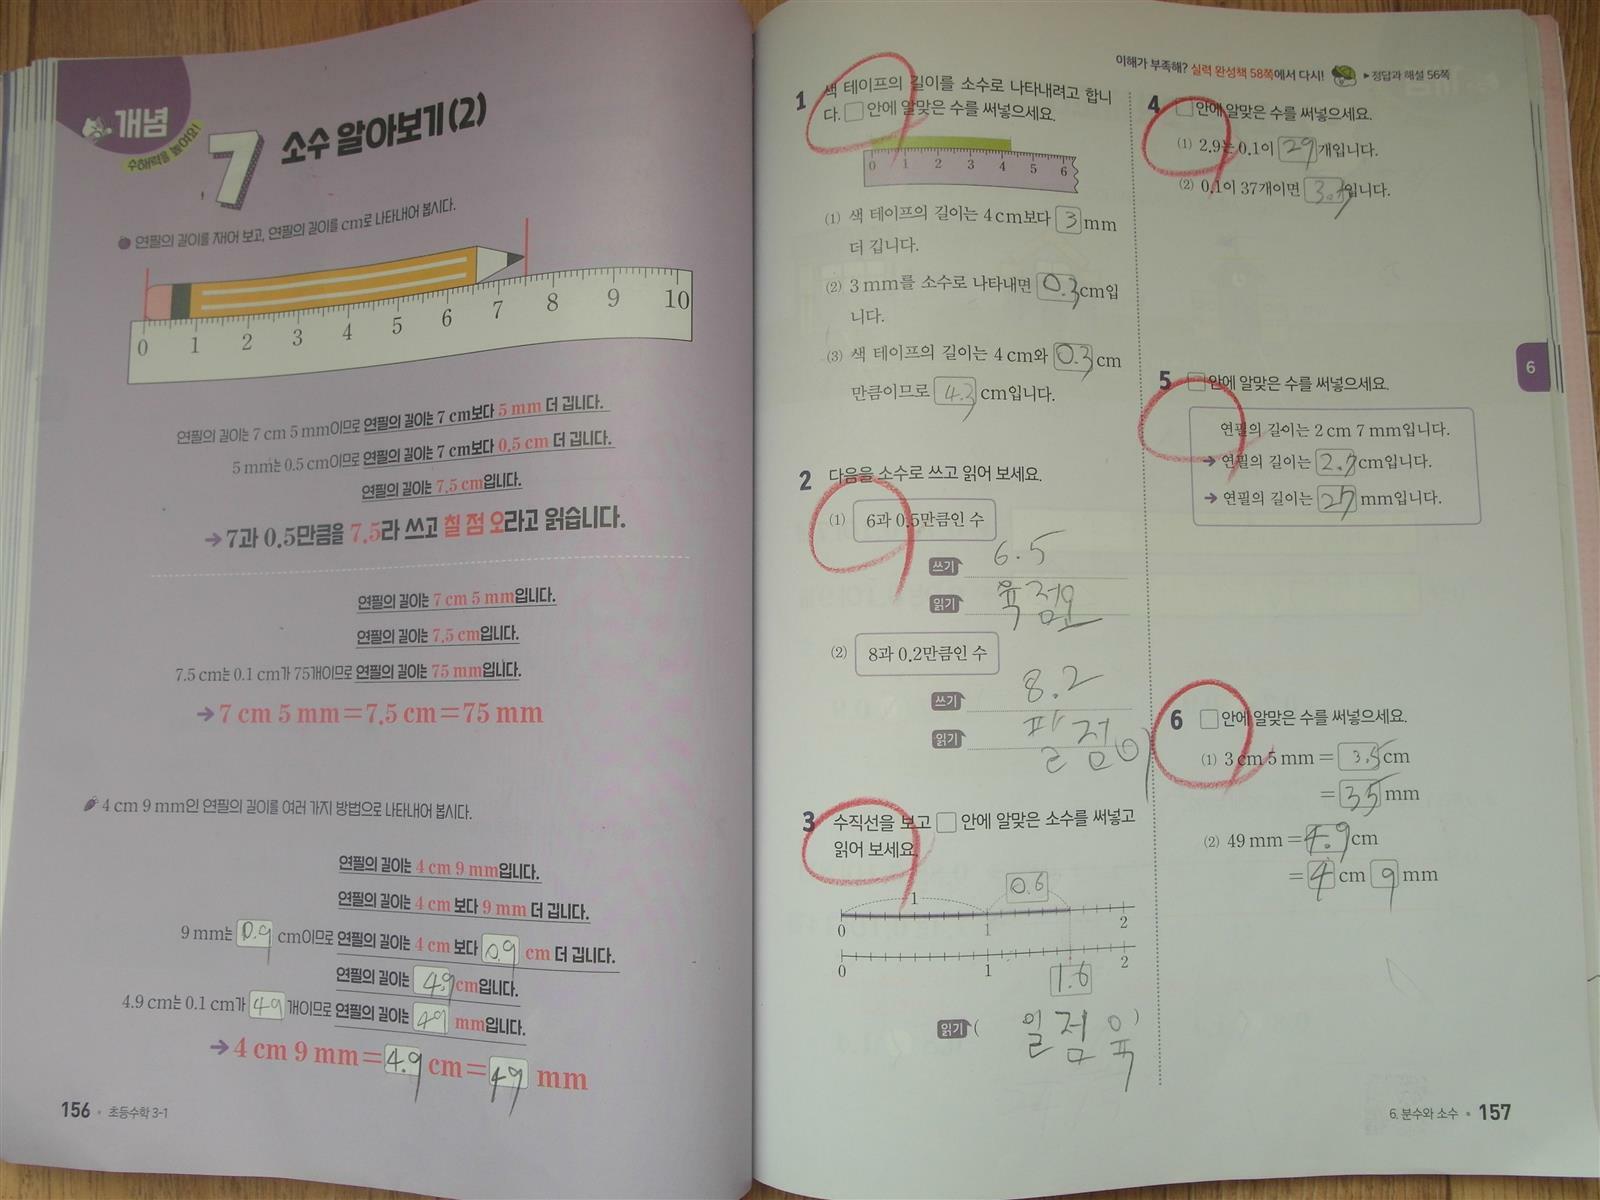 개념
수해력을 높여요!
7 소수 알아보기(2)
연필의 길이를 재어 보고, 연필의 길이를 cm로 나타내어 봅시다.
0 1 2 3 4 5 6 7 8 9 10
연필의 길이는 7 cm 5 mm이므로 연필의 길이는 7 cm보다 5 mm 더 깁니다.
5 mm는 0.5 cm이므로 연필의 길이는 7 cm보다 0.5 cm 더 깁니다.
연필의 길이는 7.5 cm입니다.
→ 7과 0.5만큼을 7.5라 쓰고 칠 점 오라고 읽습니다.
연필의 길이는 7 cm 5 mm입니다.
연필의 길이는 7.5 cm입니다.
7.5 cm는 0.1 cm가 75개이므로 연필의 길이는 75 mm입니다.
→ 7 cm 5 mm=7.5 cm=75 mm
4 cm 9 mm인 연필의 길이를 여러 가지 방법으로 나타내어 봅시다.
연필의 길이는 4 cm 9 mm입니다.
연필의 길이는 4 cm 보다 9 mm 더 깁니다.
9 mm는 0.9 cm이므로 연필의 길이는 4 cm 보다 0.9 cm 더 깁니다.
연필의 길이는 4.9 cm입니다.
4.9 cm는 0.1 cm가 49 개이므로 연필의 길이는 49 mm입니다.
→ 4 cm 9 mm=4.9 cm=49 mm
156 • 초등수학 3-1
이해가 부족해? 실력 완성책 58쪽에서 다시! ▶정답과 해설 56쪽
1 색 테이프의 길이를 소수로 나타내려고 합니
다. □ 안에 알맞은 수를 써넣으세요.
0 1 2 3 4 5 6
(1) 색 테이프의 길이는 4 cm보다 3 mm
더 깁니다.
(2) 3 mm를 소수로 나타내면 0.3 cm입
니다.
(3) 색 테이프의 길이는 4 cm와 0.3 cm
만큼이므로 4.3 cm입니다.
2 다음을 소수로 쓰고 읽어 보세요.
(1) 6과 0.5만큼인 수
쓰기 6.5
읽기 육점오
(2) 8과 0.2만큼인 수
쓰기 8.2
읽기 팔점이
3 수직선을 보고 □ 안에 알맞은 소수를 써넣고
읽어 보세요.
1 0.6
0 1 2
0 1 2
1.6
읽기 ( 일점육 )
4 □ 안에 알맞은 수를 써넣으세요.
(1) 2.9는 0.1이 29 개입니다.
(2) 0.1이 37개이면 3.7 입니다.
5 □ 안에 알맞은 수를 써넣으세요.
연필의 길이는 2 cm 7 mm입니다.
→ 연필의 길이는 2.7 cm입니다.
→ 연필의 길이는 27 mm입니다.
6
6 □ 안에 알맞은 수를 써넣으세요.
(1) 3 cm 5 mm = 3.5 cm
= 35 mm
(2) 49 mm = 4.9 cm
= 4 cm 9 mm
6. 분수와 소수 • 157